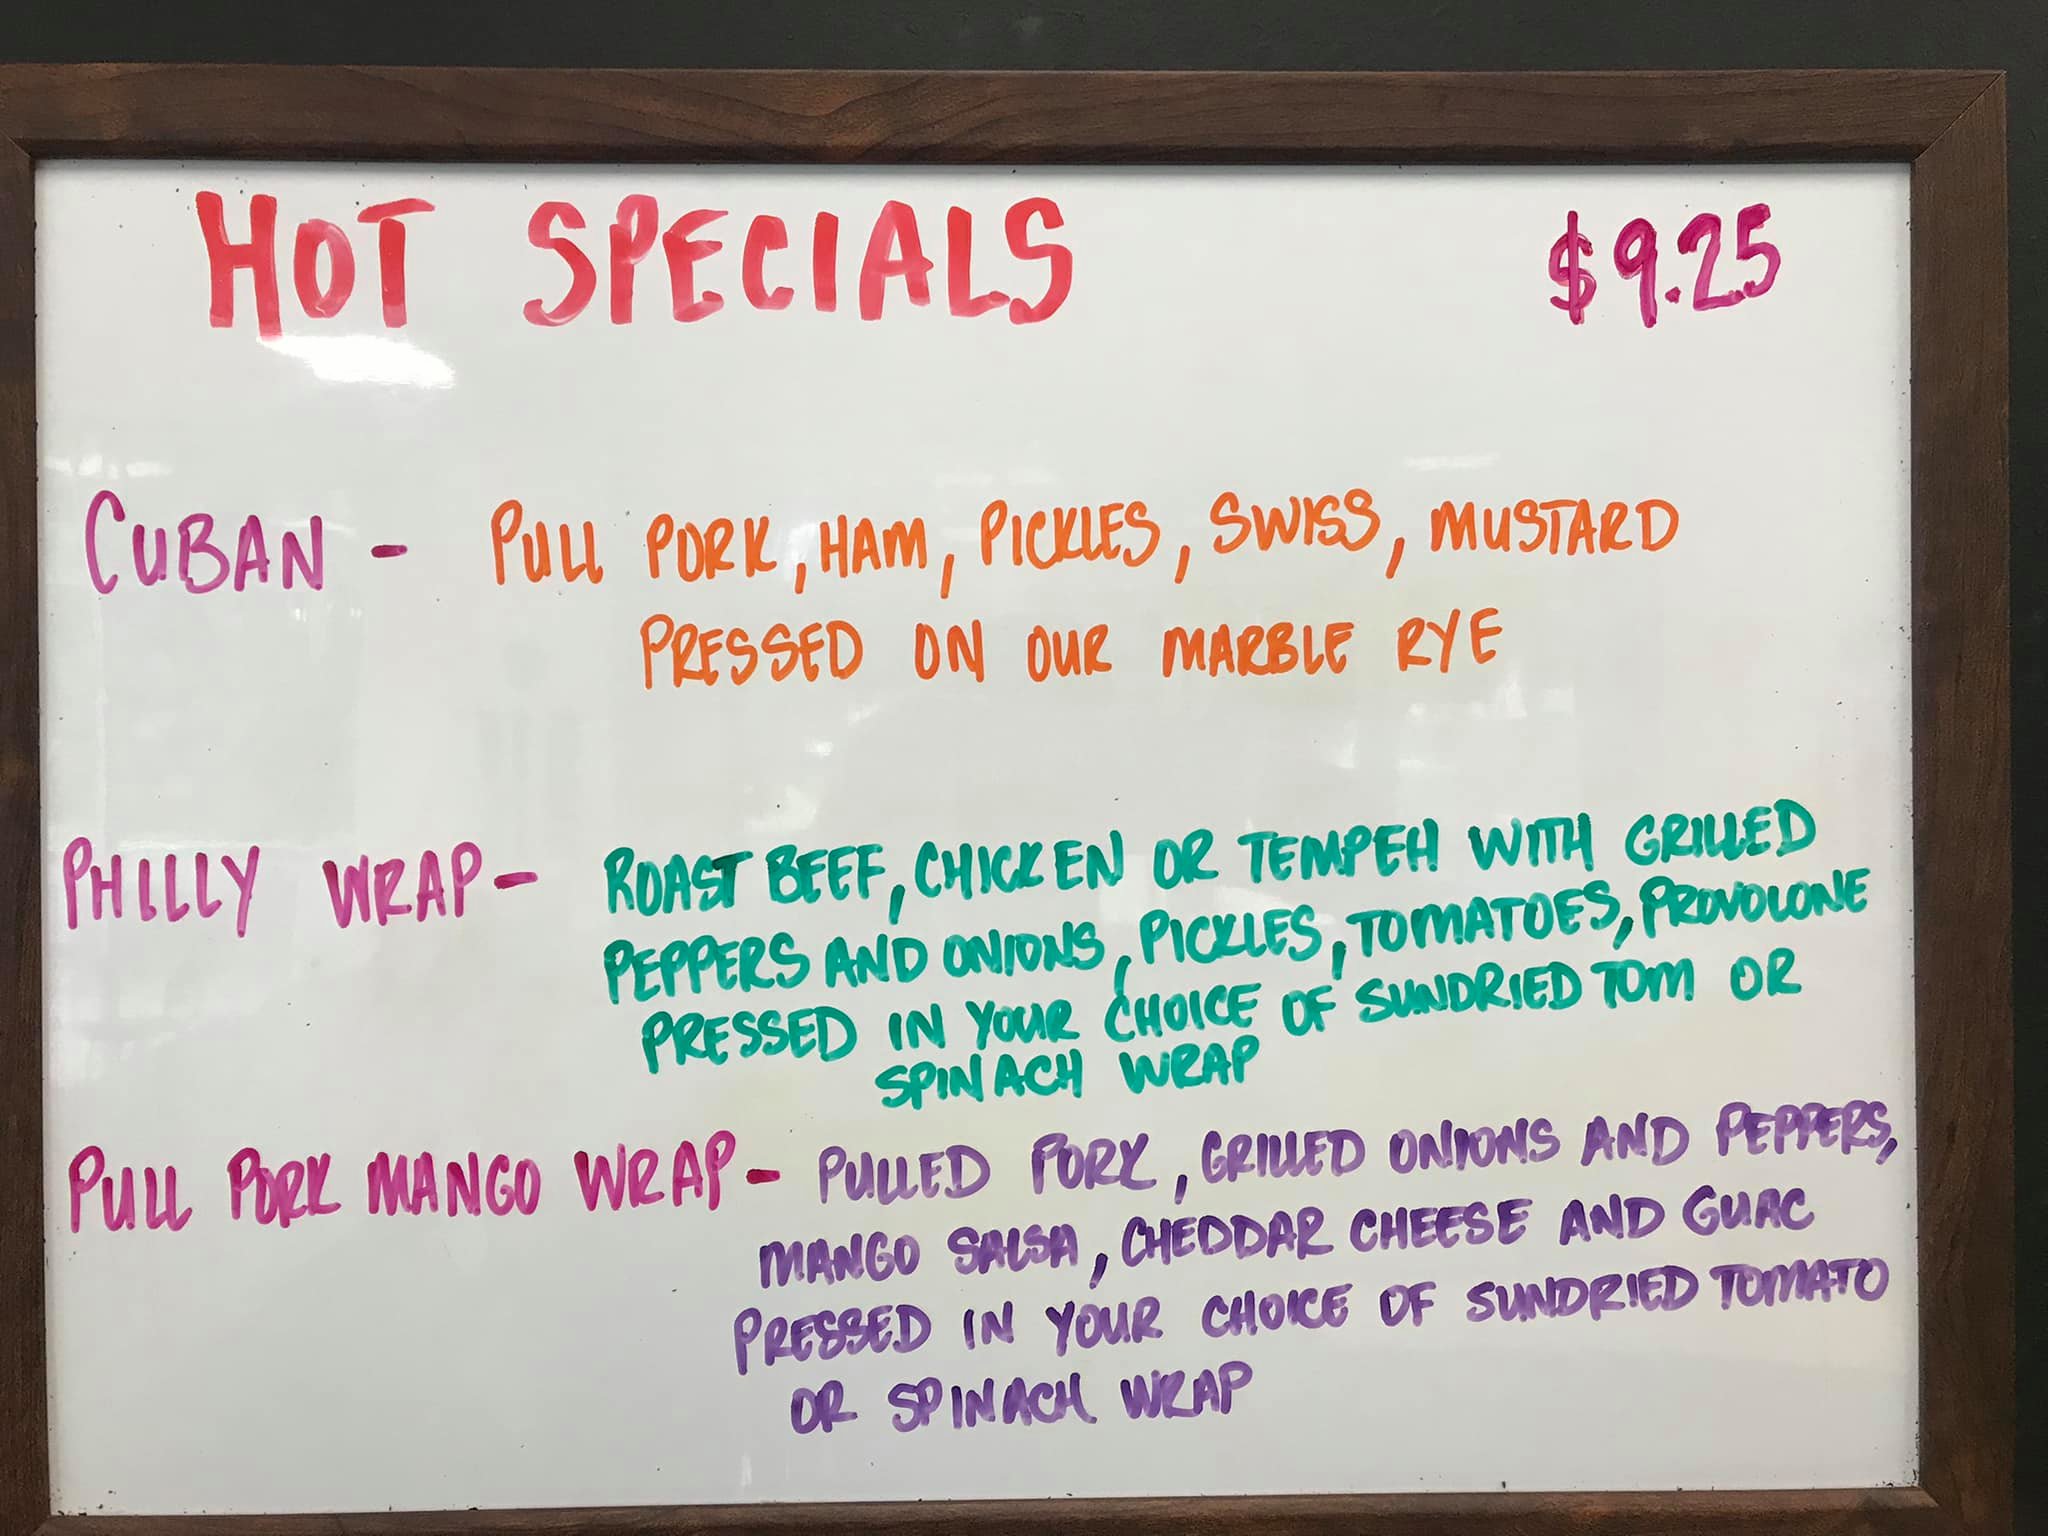 HOT SPECIALS $9.25
CUBAN - PULL PORK, HAM, PICKLES, SWISS, MUSTARD
PRESSED ON OUR MARBLE RYE
PHILLY WRAP - ROAST BEEF, CHICKEN OR TEMPEH WITH GRILLED
PEPPERS AND ONIONS, PICKLES, TOMATOES, PROVOLONE
PRESSED IN YOUR CHOICE OF SUNDRIED TOM OR
SPINACH WRAP
PULL PORK MANGO WRAP - PULLED PORK, GRILLED ONIONS AND PEPPERS,
MANGO SALSA, CHEDDAR CHEESE AND GUAC
PRESSED IN YOUR CHOICE OF SUNDRIED TOMATO
OR SPINACH WRAP